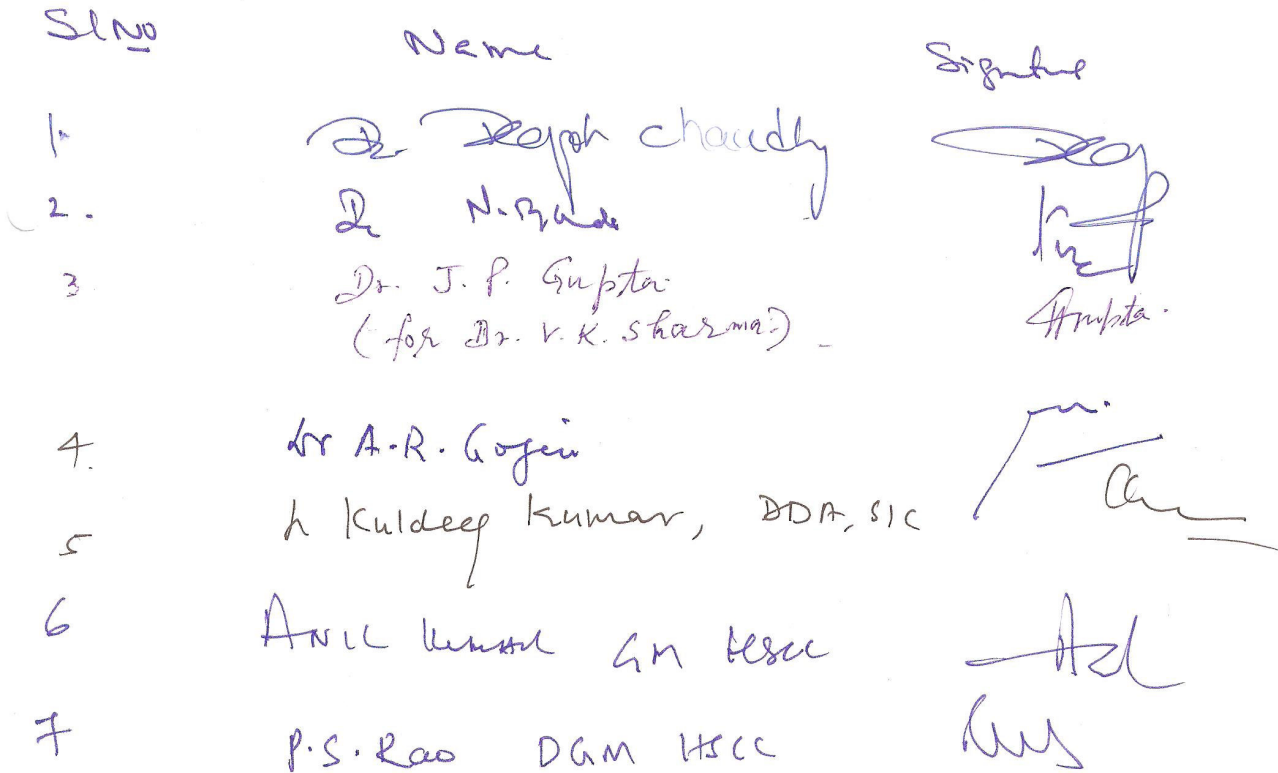 Sl No Name Signature
1. Dr. chaudhy
2. Dr N.
3 Dr. J. P. Gupta
(for Dr. V. K. Sharma) Gupta.
4. Dr A.R. Gogia
5 Kuldeep Kumar, DDA, SIC
6 ANIL KUMAR GM HSCC
7 P.S. Rao DGM HSCC